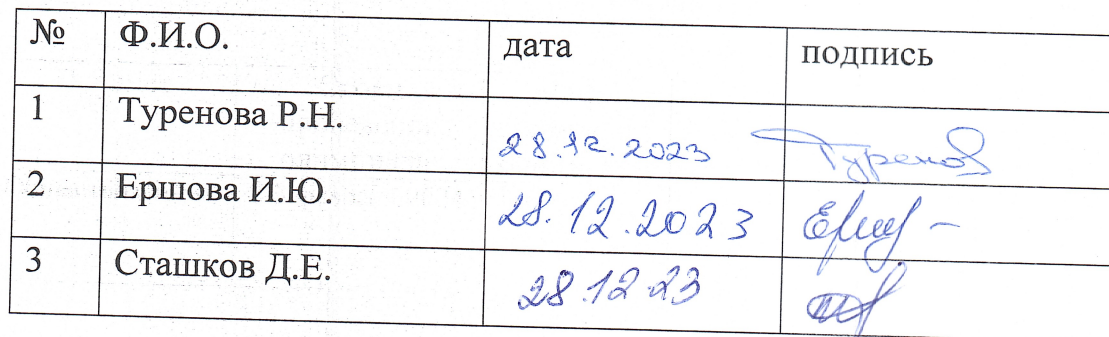 № Ф.И.О. дата подпись
1 Туренова Р.Н. 28.12.2023 Туренов
2 Ершова И.Ю. 28.12.2023
3 Сташков Д.Е. 28.12.23